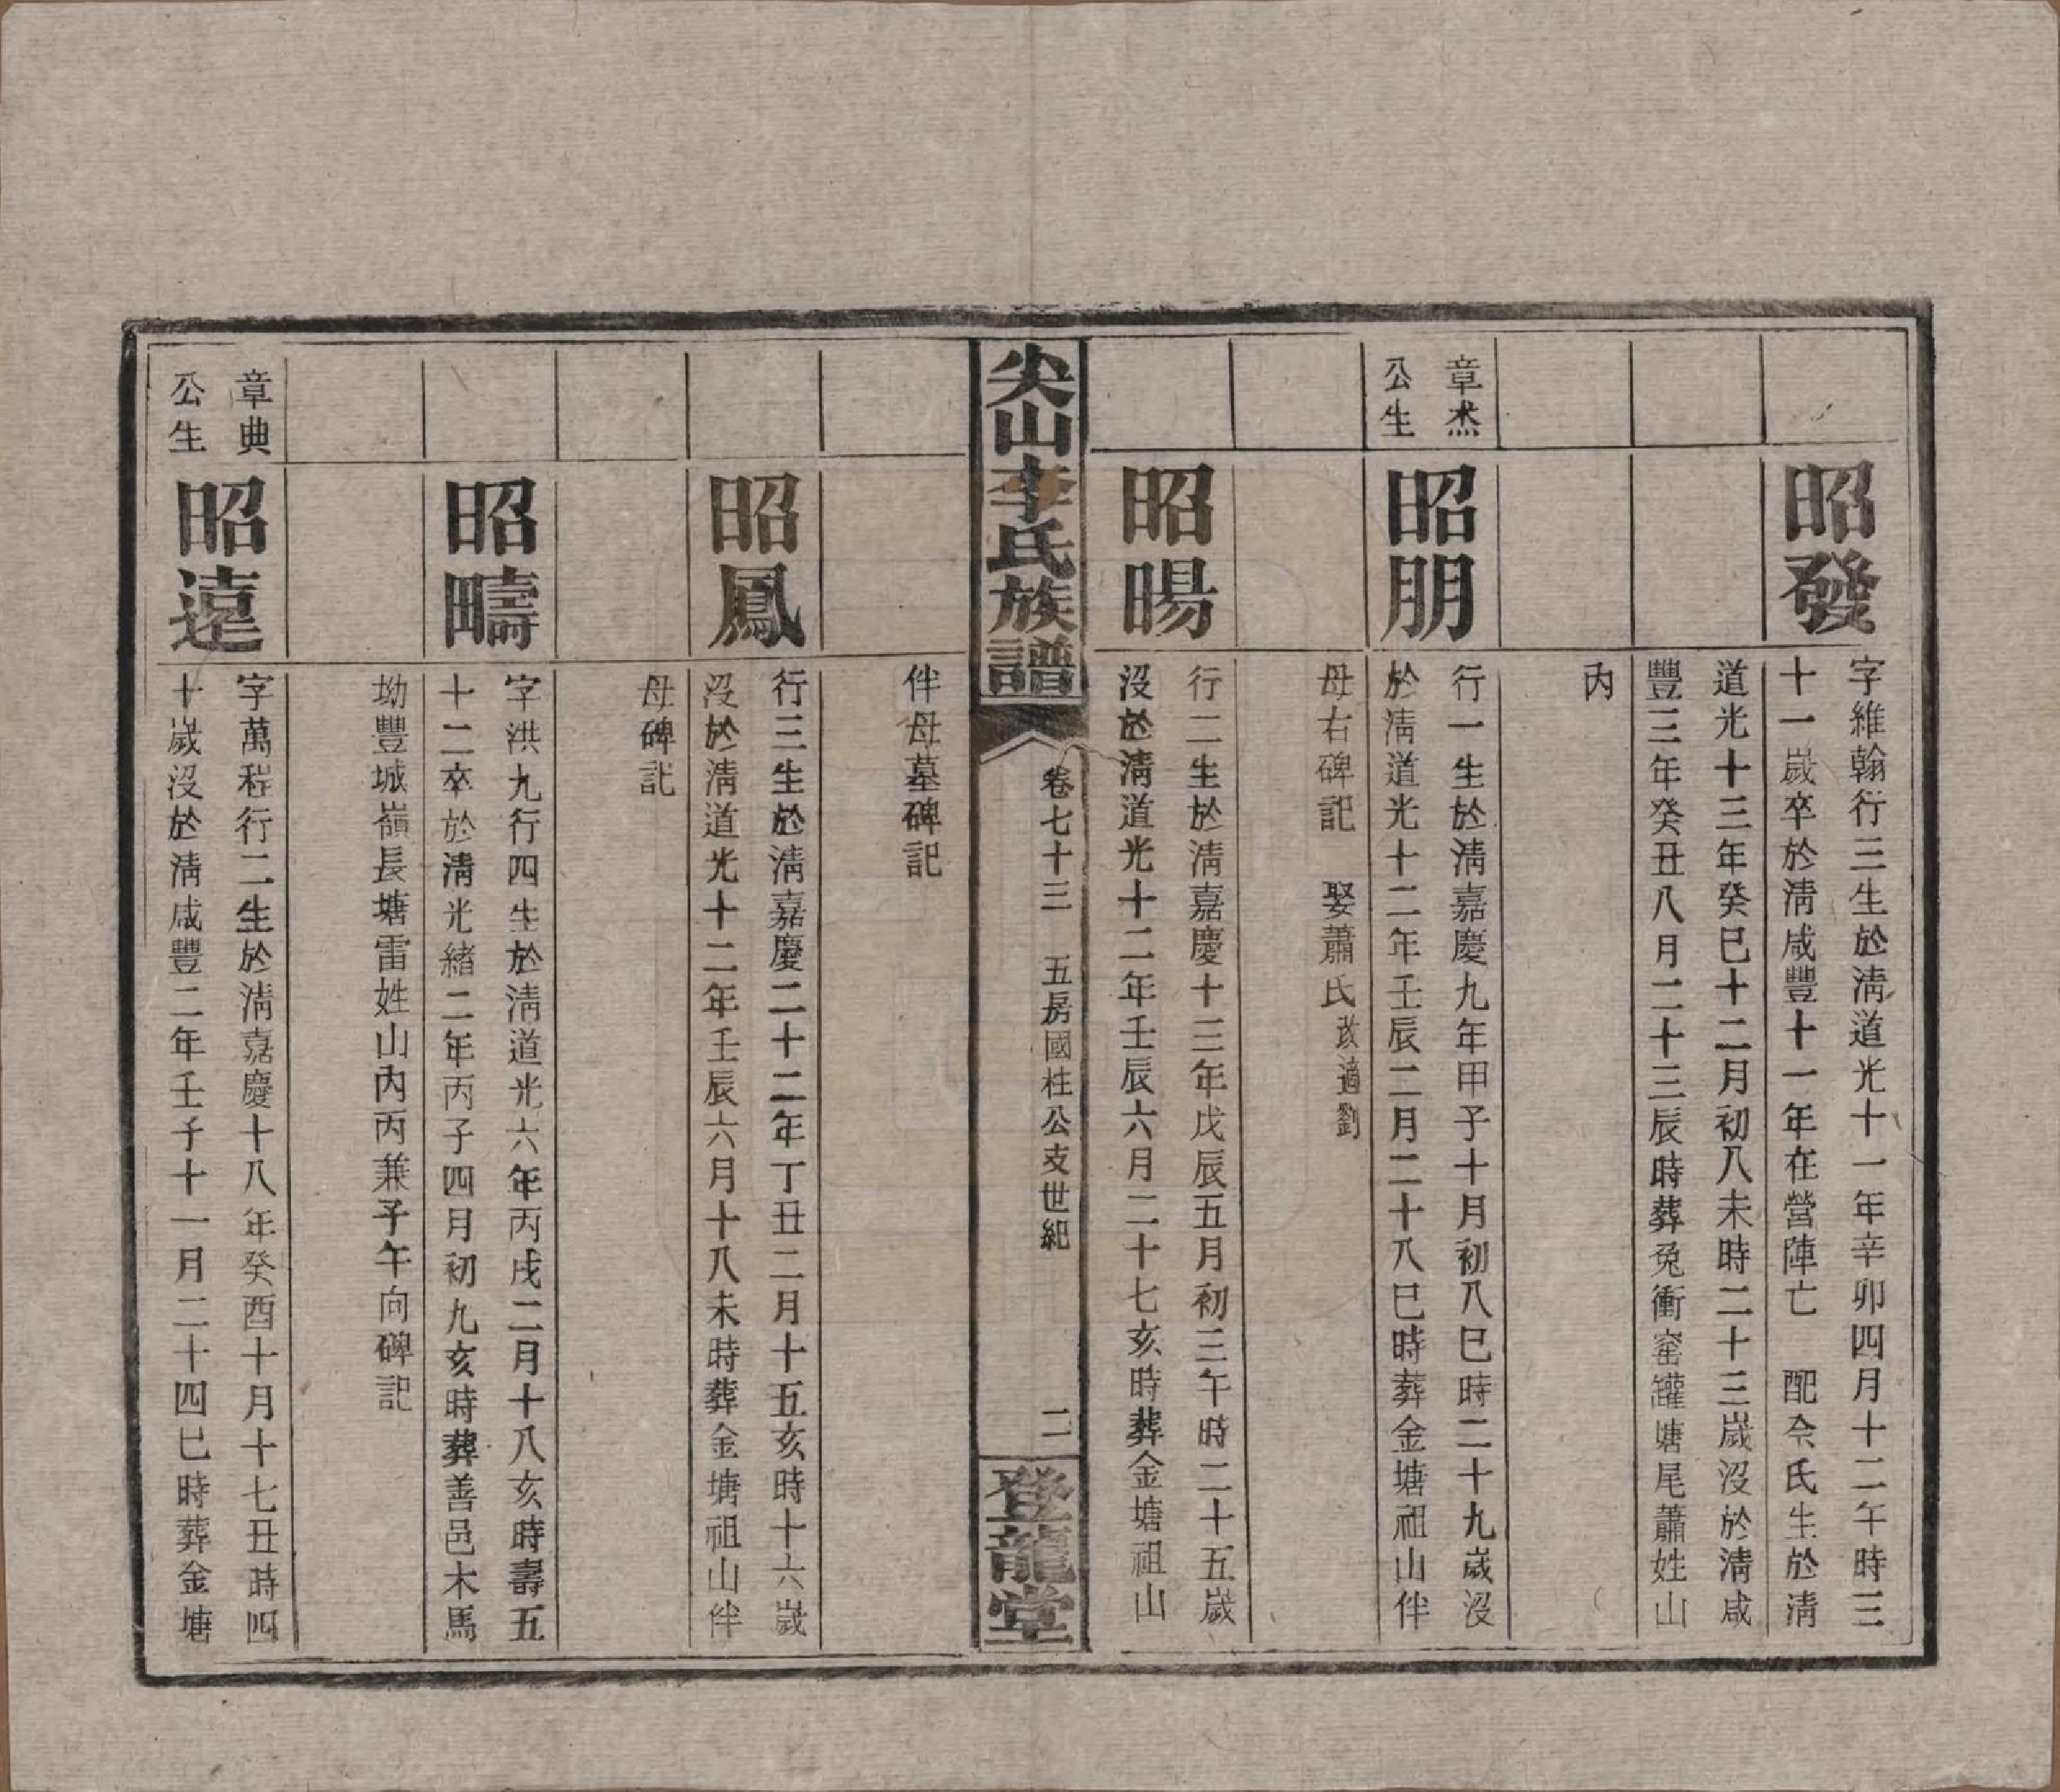 昭發
字維翰行三生於淸道光十一年辛卯四月十二午時三
十一歲卒於淸咸豐十一年在營陣亡　配佘氏生於淸
道光十三年癸巳十二月初八未時二十三歲沒於淸咸
豐三年癸丑八月二十三辰時葬兔衝窰罐塘尾蕭姓山
內
章烋
公生
昭朋
行一生於淸嘉慶九年甲子十月初八巳時二十九歲沒
於淸道光十二年壬辰二月二十八巳時葬金塘祖山伴
母右碑記　娶蕭氏改適劉
昭暘
行二生於淸嘉慶十三年戊辰五月初三午時二十五歲
沒於淸道光十二年壬辰六月二十七亥時葬金塘祖山
尖山李氏族譜
卷七十三　五房國柱公支世紀
二
登龍堂
伴母墓碑記
昭鳳
行三生於淸嘉慶二十二年丁丑二月十五亥時十六歲
沒於淸道光十二年壬辰六月十八未時葬金塘祖山伴
母碑記
昭疇
字洪九行四生於淸道光六年丙戌二月十八亥時壽五
十二卒於淸光緒二年丙子四月初九亥時葬善邑木馬
坳豐城嶺長塘雷姓山內丙兼子午向碑記
章典
公生
昭遠
字萬程行二生於淸嘉慶十八年癸酉十月十七丑時四
十歲沒於淸咸豐二年壬子十一月二十四巳時葬金塘